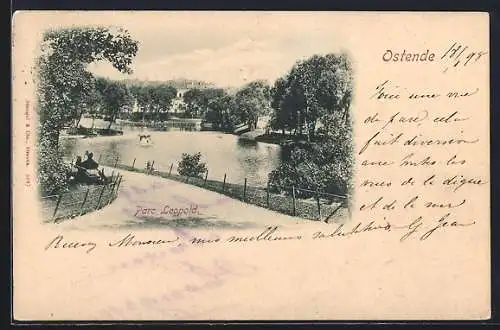 Ostende 18/6 98
Voici une vue
de parc cela
fait diversion
avec toutes les
vues de la digue
et de la mer
Parc Leopold.
Recevez Monsieur mes meilleures salutations